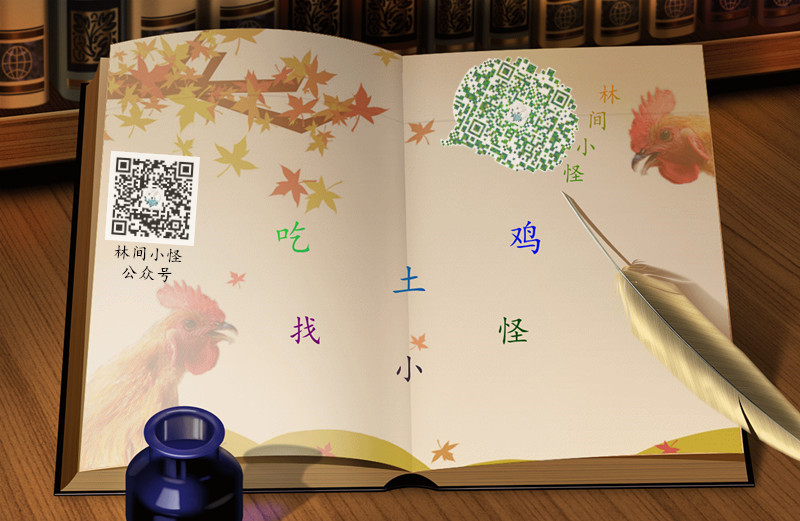 林间小怪
林间小怪
公众号
吃土鸡
找小怪